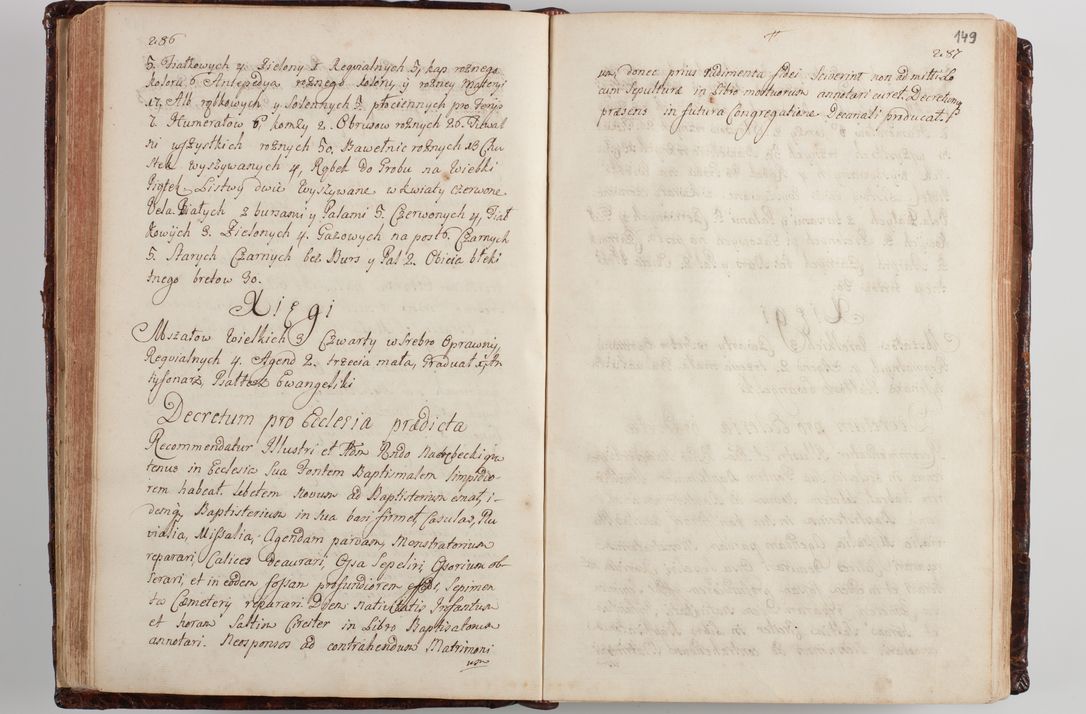 286
5. Fiałkowych 4. Zielony 1. Requialnych 5, kap rożnego
koloru 6 Antepedya rożnego koloru y rożney Materyi
17, Alb rąbkowych y Solennych 3. płociennych pro Feriis
7. Humerałow 6, komży 2. Obrusow rożnych 26.
ni wszystkich rożnych 50. Bawełnic rożnych 18 Chu
stek wyszywanych 4, Rąbek do Grobu na Wielki
Piątek Listwy dwie wyszywane w kwiaty czerwone
Vela Białych z bursami y Palami 5. Czerwonych 4, Fiał
kowych 3. Zielonych 4. Gazowych na post 6. Czarnych
5. Starych Czarnych bez Burs y Pal 2. Obicia błęki
tnego bretow 30.
Xięgi
Mszałow Wielkich 3 Czwarty w Srebro Oprawny,
Requialnych 4. Agend 2. trzecia mała, Graduał 1, An
tyfonarz, Psałterz Ewangeliki
Decretum pro Ecclesia prædicta
Recommendatur Illustri et Adm Rndo qua
tenus in Ecclesia Sua Fontem Baptismalem limpidio
rem habeat. Lebetem novum ad Baptisterium emat, i-
demq Baptisterium in sua basi firmet, Casulas, Plu
vialia, Missalia, Agendam parvam, Monstratorium
reparari, Calices deaurari, Ossa Sepeliri, Ossorium ob-
serari, et in eodem fossam profundiorem Sepimen
ta Cæmeterij reparari. Diem nativitatis Infantum
et horam Saltim Circiter in Libro Baptisatorum
annotari. Neosponsos ad contrahendum Matrimoni
um
149
287
um, donec prius rudimenta fidei sciverint non admitti. Lo
cum Sepulturæ in Libro mortuorum annotari curet. Decretumq
præsens in futura Congregatione Decanali producat.